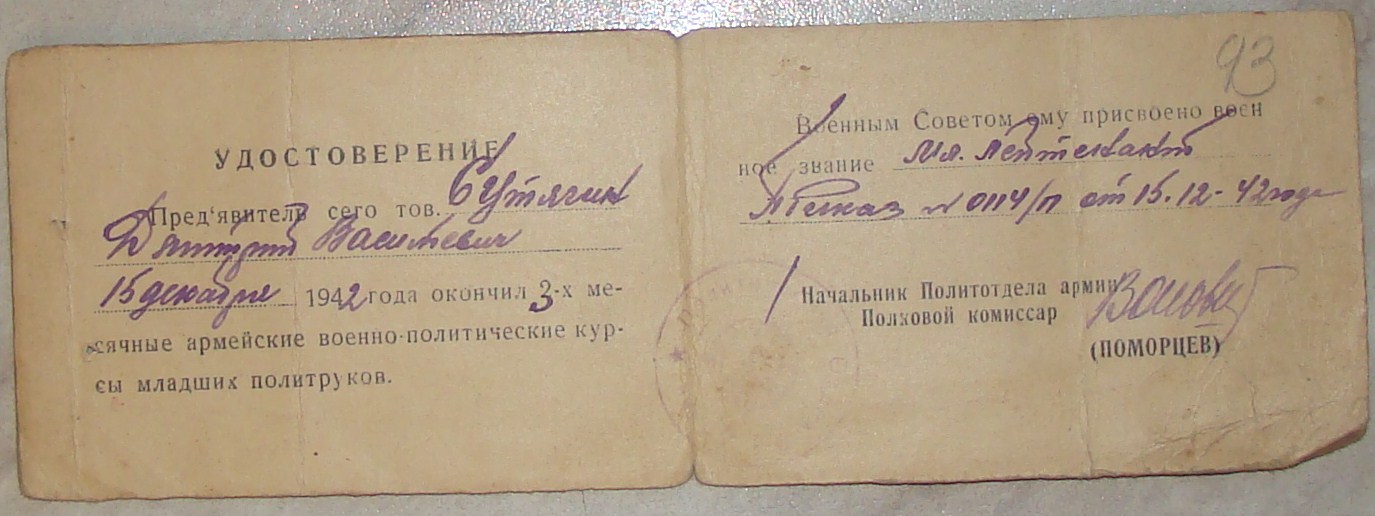 УДОСТОВЕРЕНИЕ
Пред'явитель сего тов. Сутягин
Дмитрий Васильевич
15 декабря 1942 года окончил 3-х ме-
сячные армейские военно-политические кур-
сы младших политруков.
93
Военным Советом ему присвоено воен
ное звание Мл. Лейтенант
Приказ № 0114/п от 15.12-42 года
Начальник Политотдела армии
Полковой комиссар
(ПОМОРЦЕВ)